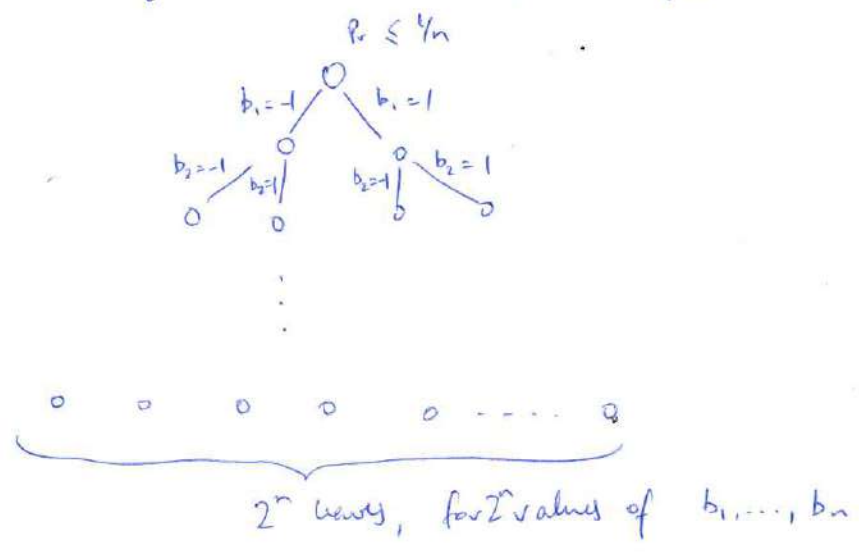 Pr ≤ 1/n
b₁=-1 b₁=1
b₂=-1 b₂=1 b₂=-1 b₂=1
2ⁿ leaves, for 2ⁿ values of b₁,...., bₙ